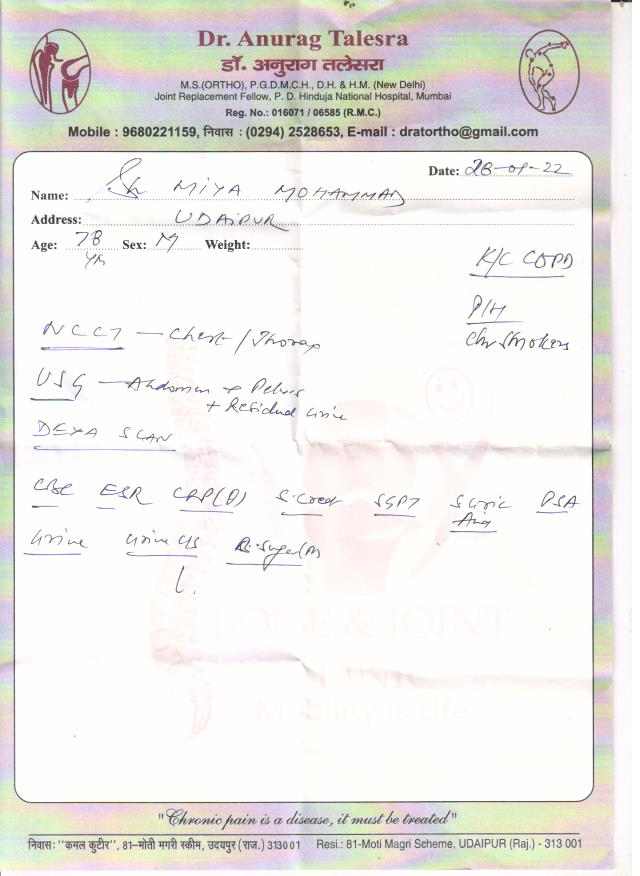 Dr. Anurag Talesra
डॉ. अनुराग तलेसरा
M.S.(ORTHO), P.G.D.M.C.H., D.H. & H.M. (New Delhi)
Joint Replacement Fellow, P. D. Hinduja National Hospital, Mumbai
Reg. No.: 016071 / 06585 (R.M.C.)
Mobile : 9680221159, निवास : (0294) 2528653, E-mail : dratortho@gmail.com
Date: 28-09-22
Name: Sh MIYA MOHAMMAD
Address: UDAIPUR
Age: 78 Yr Sex: M Weight:
K/C COPD
P/H
Chr Smokers
NCCT - Chest/Thorax
USG - Abdomen + Pelvis
+ Residual Urine
DEXA SCAN
CBC ESR CRP(Q) S. Creat SGPT S Uric PSA
Urine Urine C/S B. Sugar (R)
BONE & JOINT
CLINIC
Mobility is Life
"Chronic pain is a disease, it must be treated"
निवास: "कमल कुटीर", 81-मोती मगरी स्कीम, उदयपुर (राज.) 313001 Resi.: 81-Moti Magri Scheme, UDAIPUR (Raj.) - 313 001